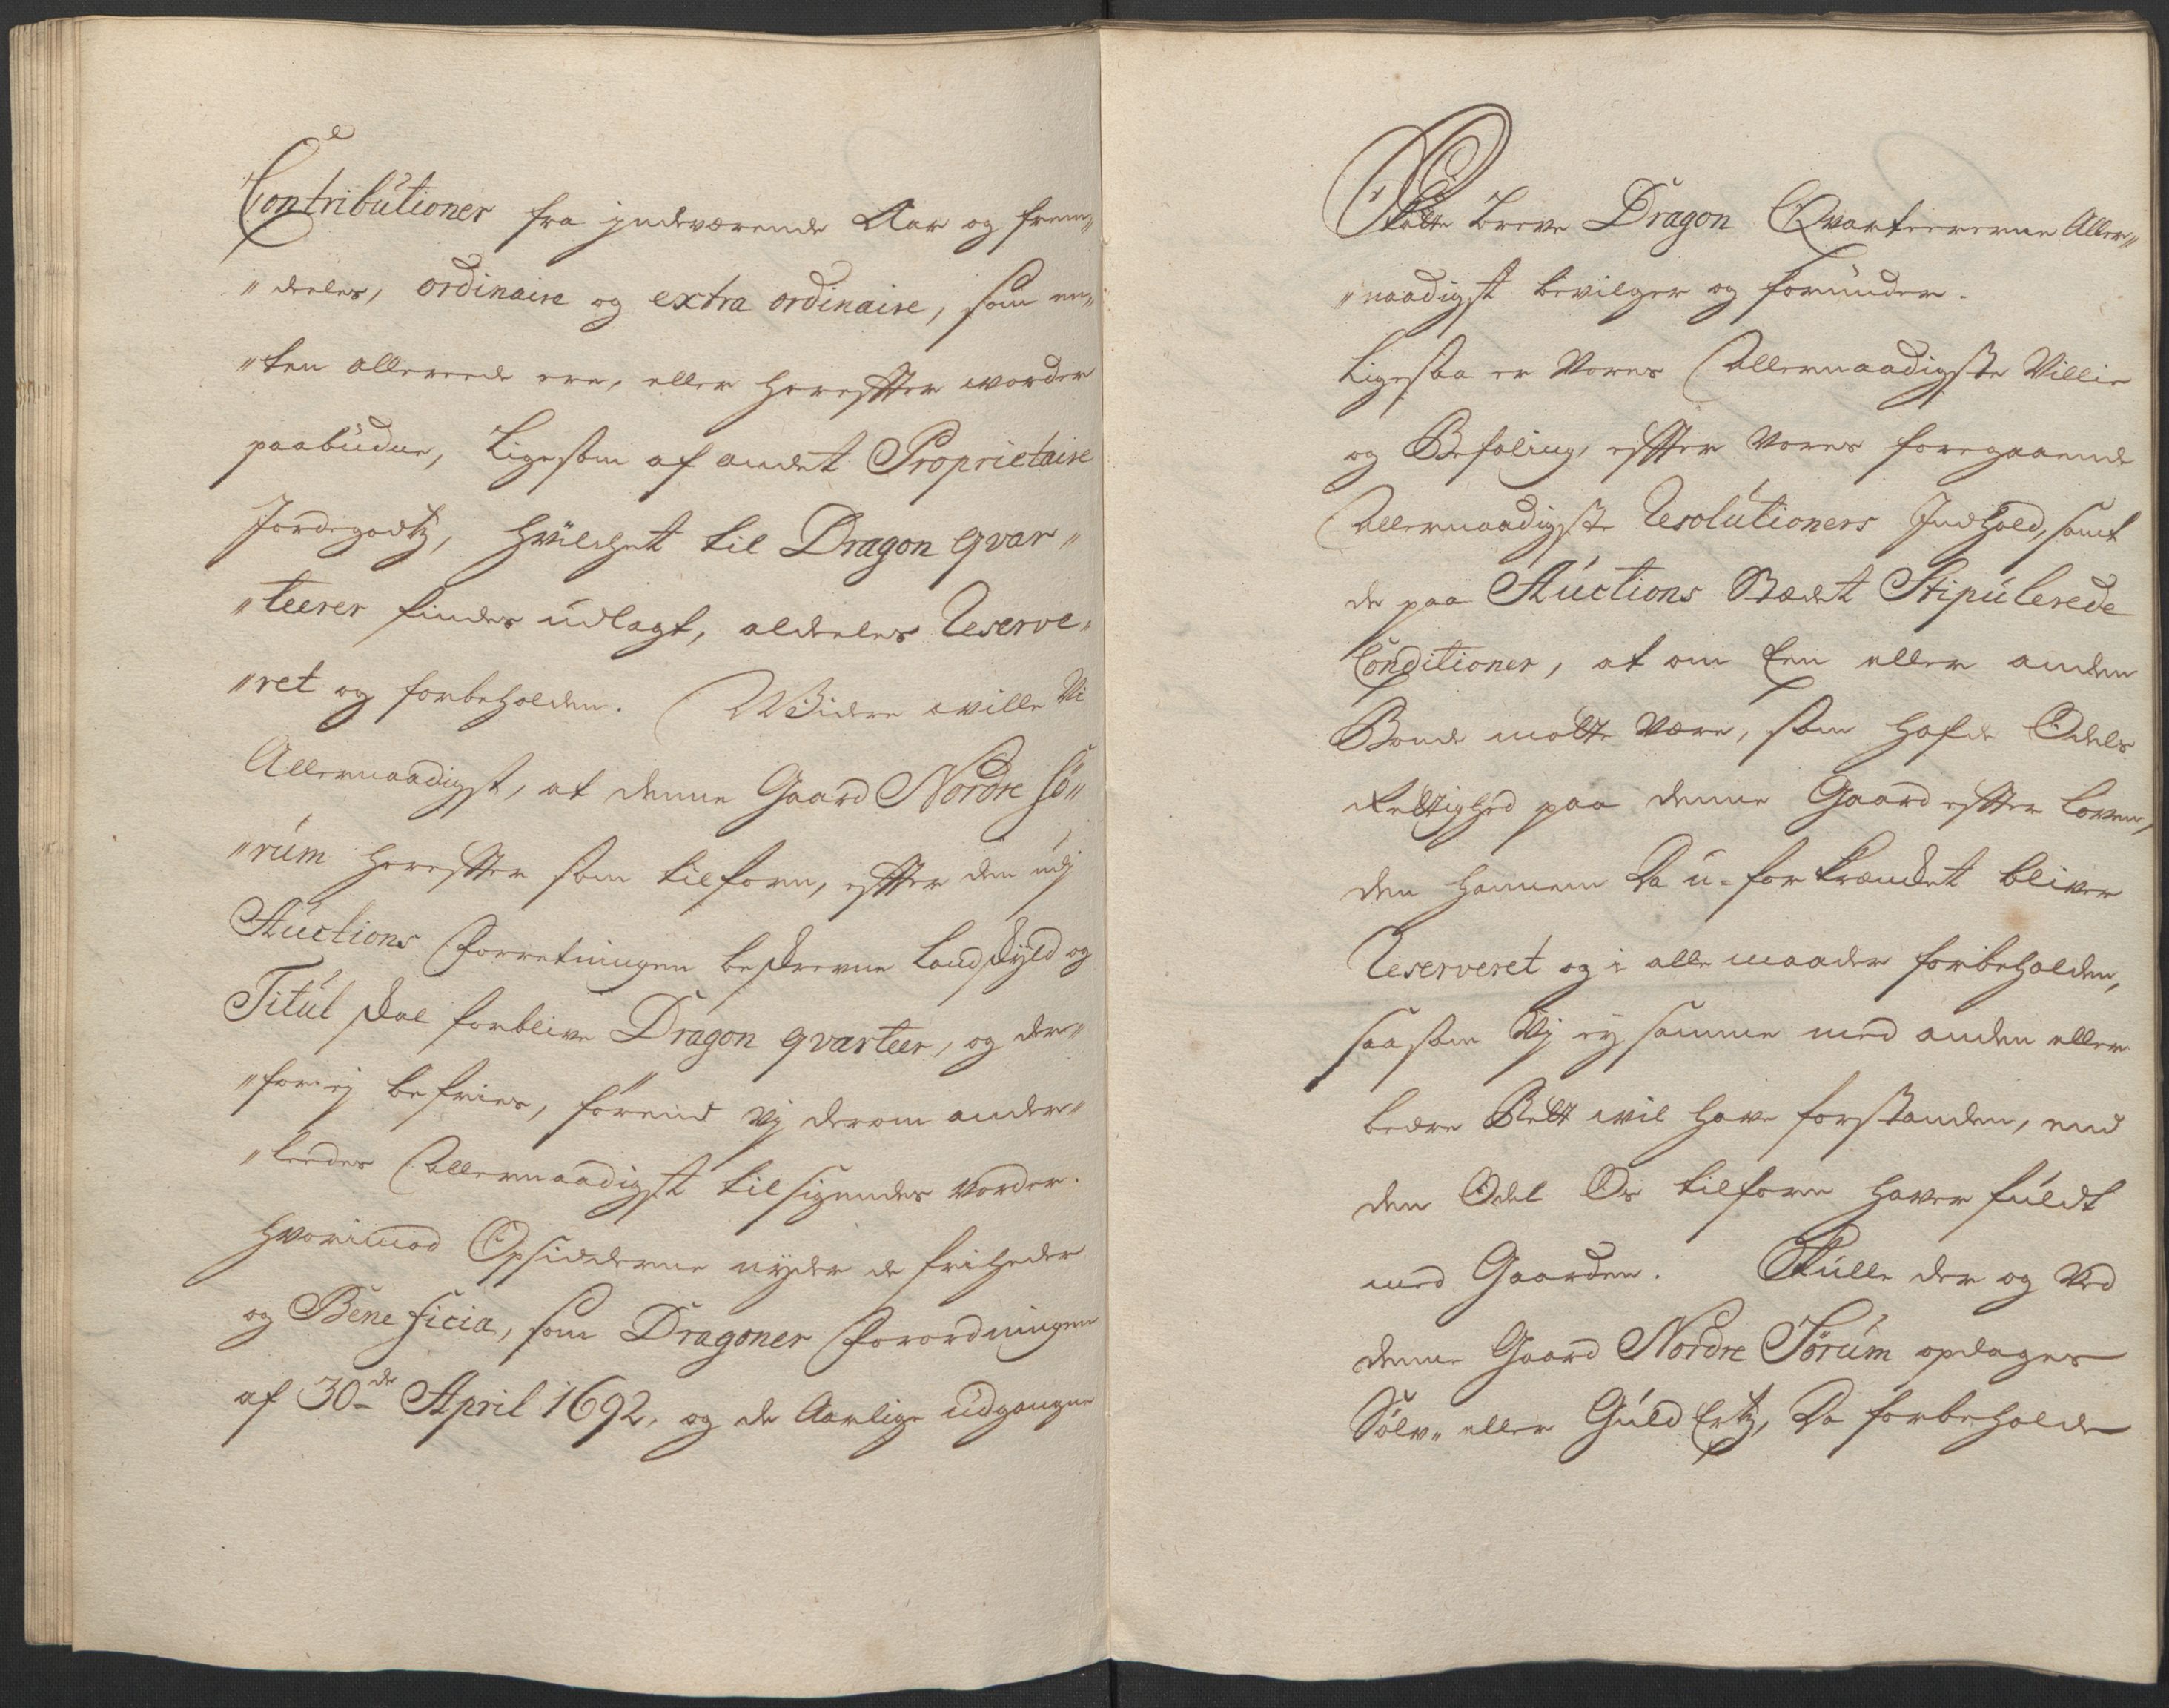 Contributioner fra indeværende Aar og frem„
„deeles, ordinaire og extra ordinaire, som en„
„ten allereede ere, eller herefter worder
paabudne, Ligesom af andet Proprietaire
Jordegodtz, hvilchet til Dragon qvar„
„teerer findes udlagt, aldeeles Reserve„
„ret og forbeholden. Widere wille Vi
Allernaadigst, at denne Gaard Nordre Sö„
„rum herefter som tilforn, efter den udj
Auctions Forretningen beskrevne Landskyld og
Titul skal forblive Dragon qvarteer, og der„
„for ej befries, förend Vj derom ander„
„leedes Allernaadigst tilsigendes vorder.
Hvorimod Opsidderne nyder de friheder
og Beneficia, som Dragoner Forordningen
af 30de April 1692, og de Aarlige udgangne
Skatte Breve Dragon Qvarteererne Aller„
„naadigst bevilger og forunder.
Ligesaa er Vores Allernaadigste Villie
og Befaling, efter Vores foregaaende
Allernaadigste Resolutioners Indhold, samt
de paa Auctions Stædet Stipulerede
Conditioner, at om Een eller anden
Bonde motte være, som hafde Odels
Rettighed paa denne Gaard efter Loven,
den hannem Da u-forkrænket bliver
Reserveret og i alle maader forbeholden,
saasom Vj ey samme med anden eller
bedre Rett wil have forstanden, end
den Odel Os tilforn haver fuldt
med Gaarden. Skulle der og Ved
denne Gaard Nordre Sörum opdages
Sölv„ eller Guld Ertz, Da forbeholde